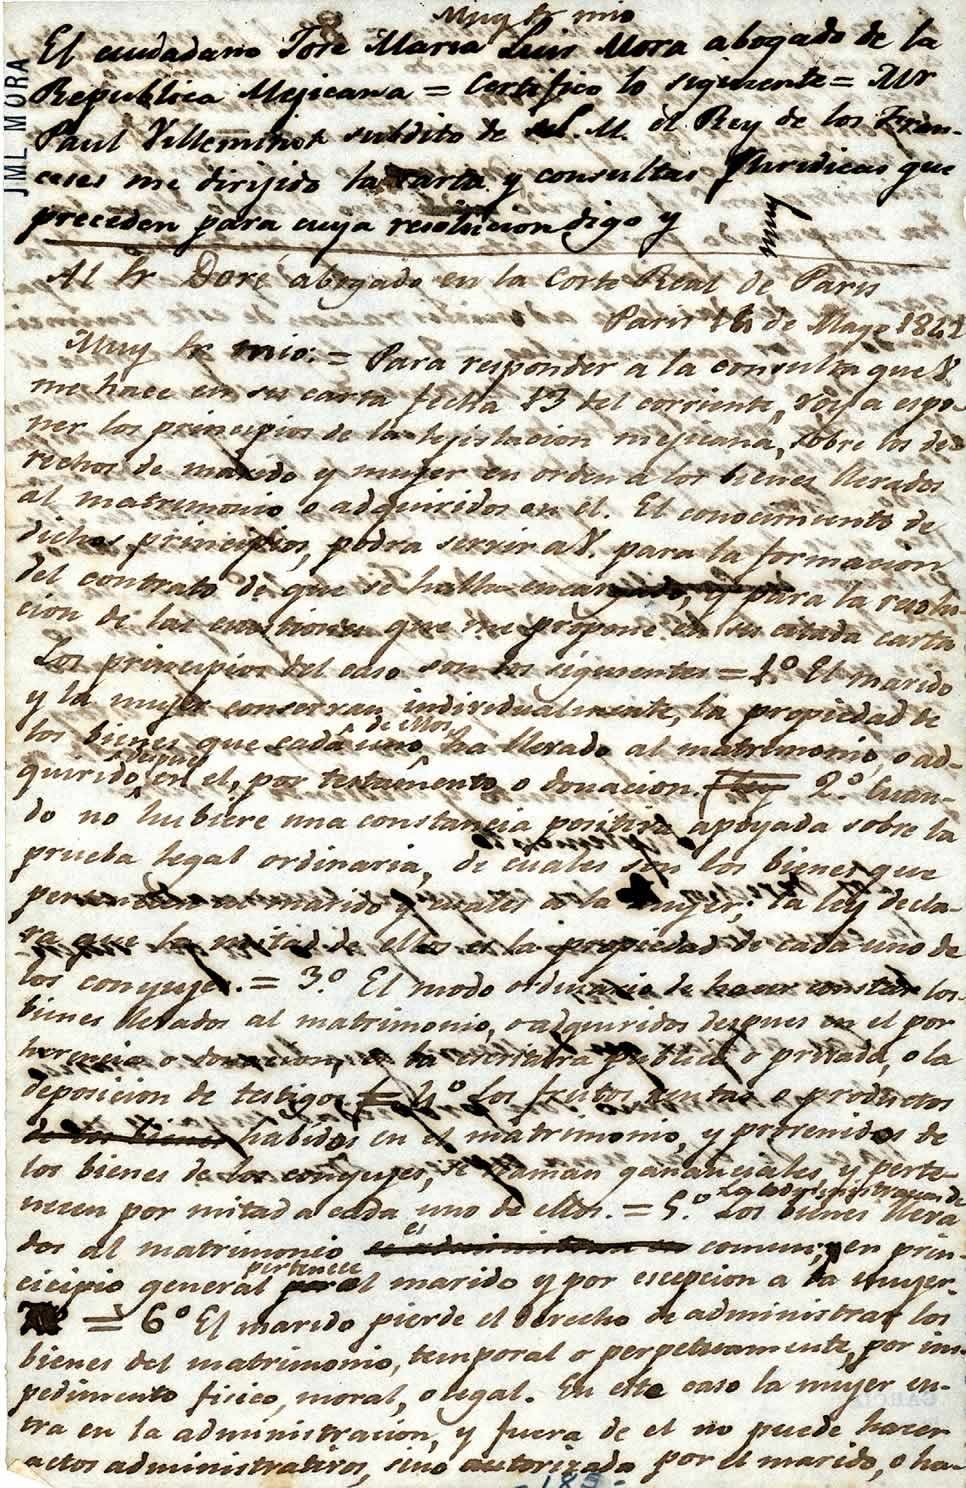 Muy Sr mio
El ciudadano José Maria Luis Mora abogado de la
Republica Mejicana = Certifico lo siguiente = Mr
Paul Villeminot subdito de S. M. el Rey de los Fran-
ceses me dirijido la carta y consultas Juridicas que
preceden para cuya resolucion digo y
muy
JML MORA
Al Sr Doré abogado en la Corte Real de Paris
Paris 16 de Mayo 1842
Muy Sr mio: = Para responder a la consulta que V.
me hace en su carta fecha 13 del corriente, voy a espo-
ner los principios de la lejislacion mejicana, sobre los de-
rechos de marido y mujer en orden a los bienes llevados
al matrimonio o adquiridos en el. El conocimiento de
dichos principios, podra servir a V. para la formacion
del contrato de que se halla encargado, y para la resolu-
cion de las cuestiones que me propone en su citada carta
Los principios del caso son los siguientes = 1.º El marido
y la mujer conservan individualmente, la propiedad de
los bienes que cada uno de ellos ha llevado al matrimonio, o ad-
quirido despues en el, por testamento o donacion. (Ley 2.º Cuan-
do no hubiere una constancia positiva apoyada sobre la
prueba legal ordinaria, de cuales son los bienes que
pertenecen al marido y cuales a la mujer; la ley decla-
ra que la mitad de ellos es la propiedad de cada uno de
los conyujes. = 3.º El modo ordinario de hacer constar los
bienes llevados al matrimonio, o adquiridos despues en el por
herencia o donacion, es la escritura publica o privada, o la
deposicion de testigos = 4º Los frutos, rentas o productos
de los bienes habidos en el matrimonio, y provenidos de
los bienes de los conyujes, se llaman gananciales y perte-
necen por mitad a cada uno de ellos. = 5.º La administracion de Los bienes lleva
dos al matrimonio se administran en es comun, y en prin-
cicipio general por pertenece al marido y por escepcion a la mujer.
= 6º El marido pierde el derecho de administrar los
bienes del matrimonio, temporal o perpetuamente, por im-
pedimento fisico, moral, o legal. En este caso la mujer en-
tra en la administracion, y fuera de el no puede hacer
actos administrativos, sino autorizada por el marido, o ha-